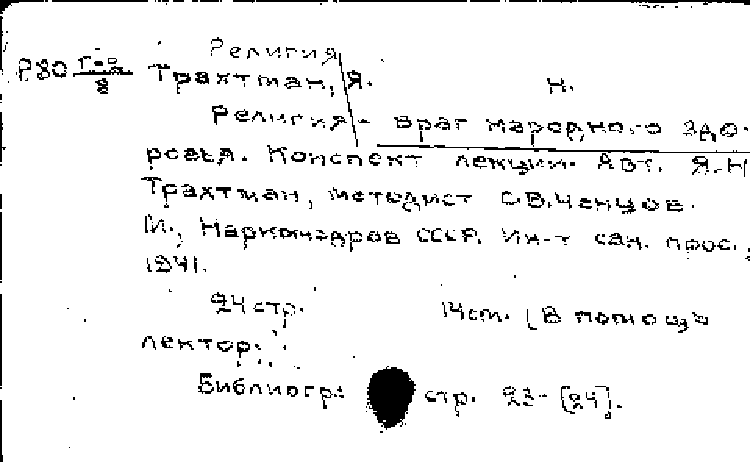 Религия
Р80 Год/8 Трахтман, Я. Н.
Религия - враг народного здо-
ровья. Конспект лекции. Авт. Я.Н.
Трахтман, методист С.В. Ченцов.
М., Наркомздрав СССР. Ин-т сан. прос.,
1941.
24 стр. 14 см. (В помощь
лектор.
Библиогр: стр. 23-[24].